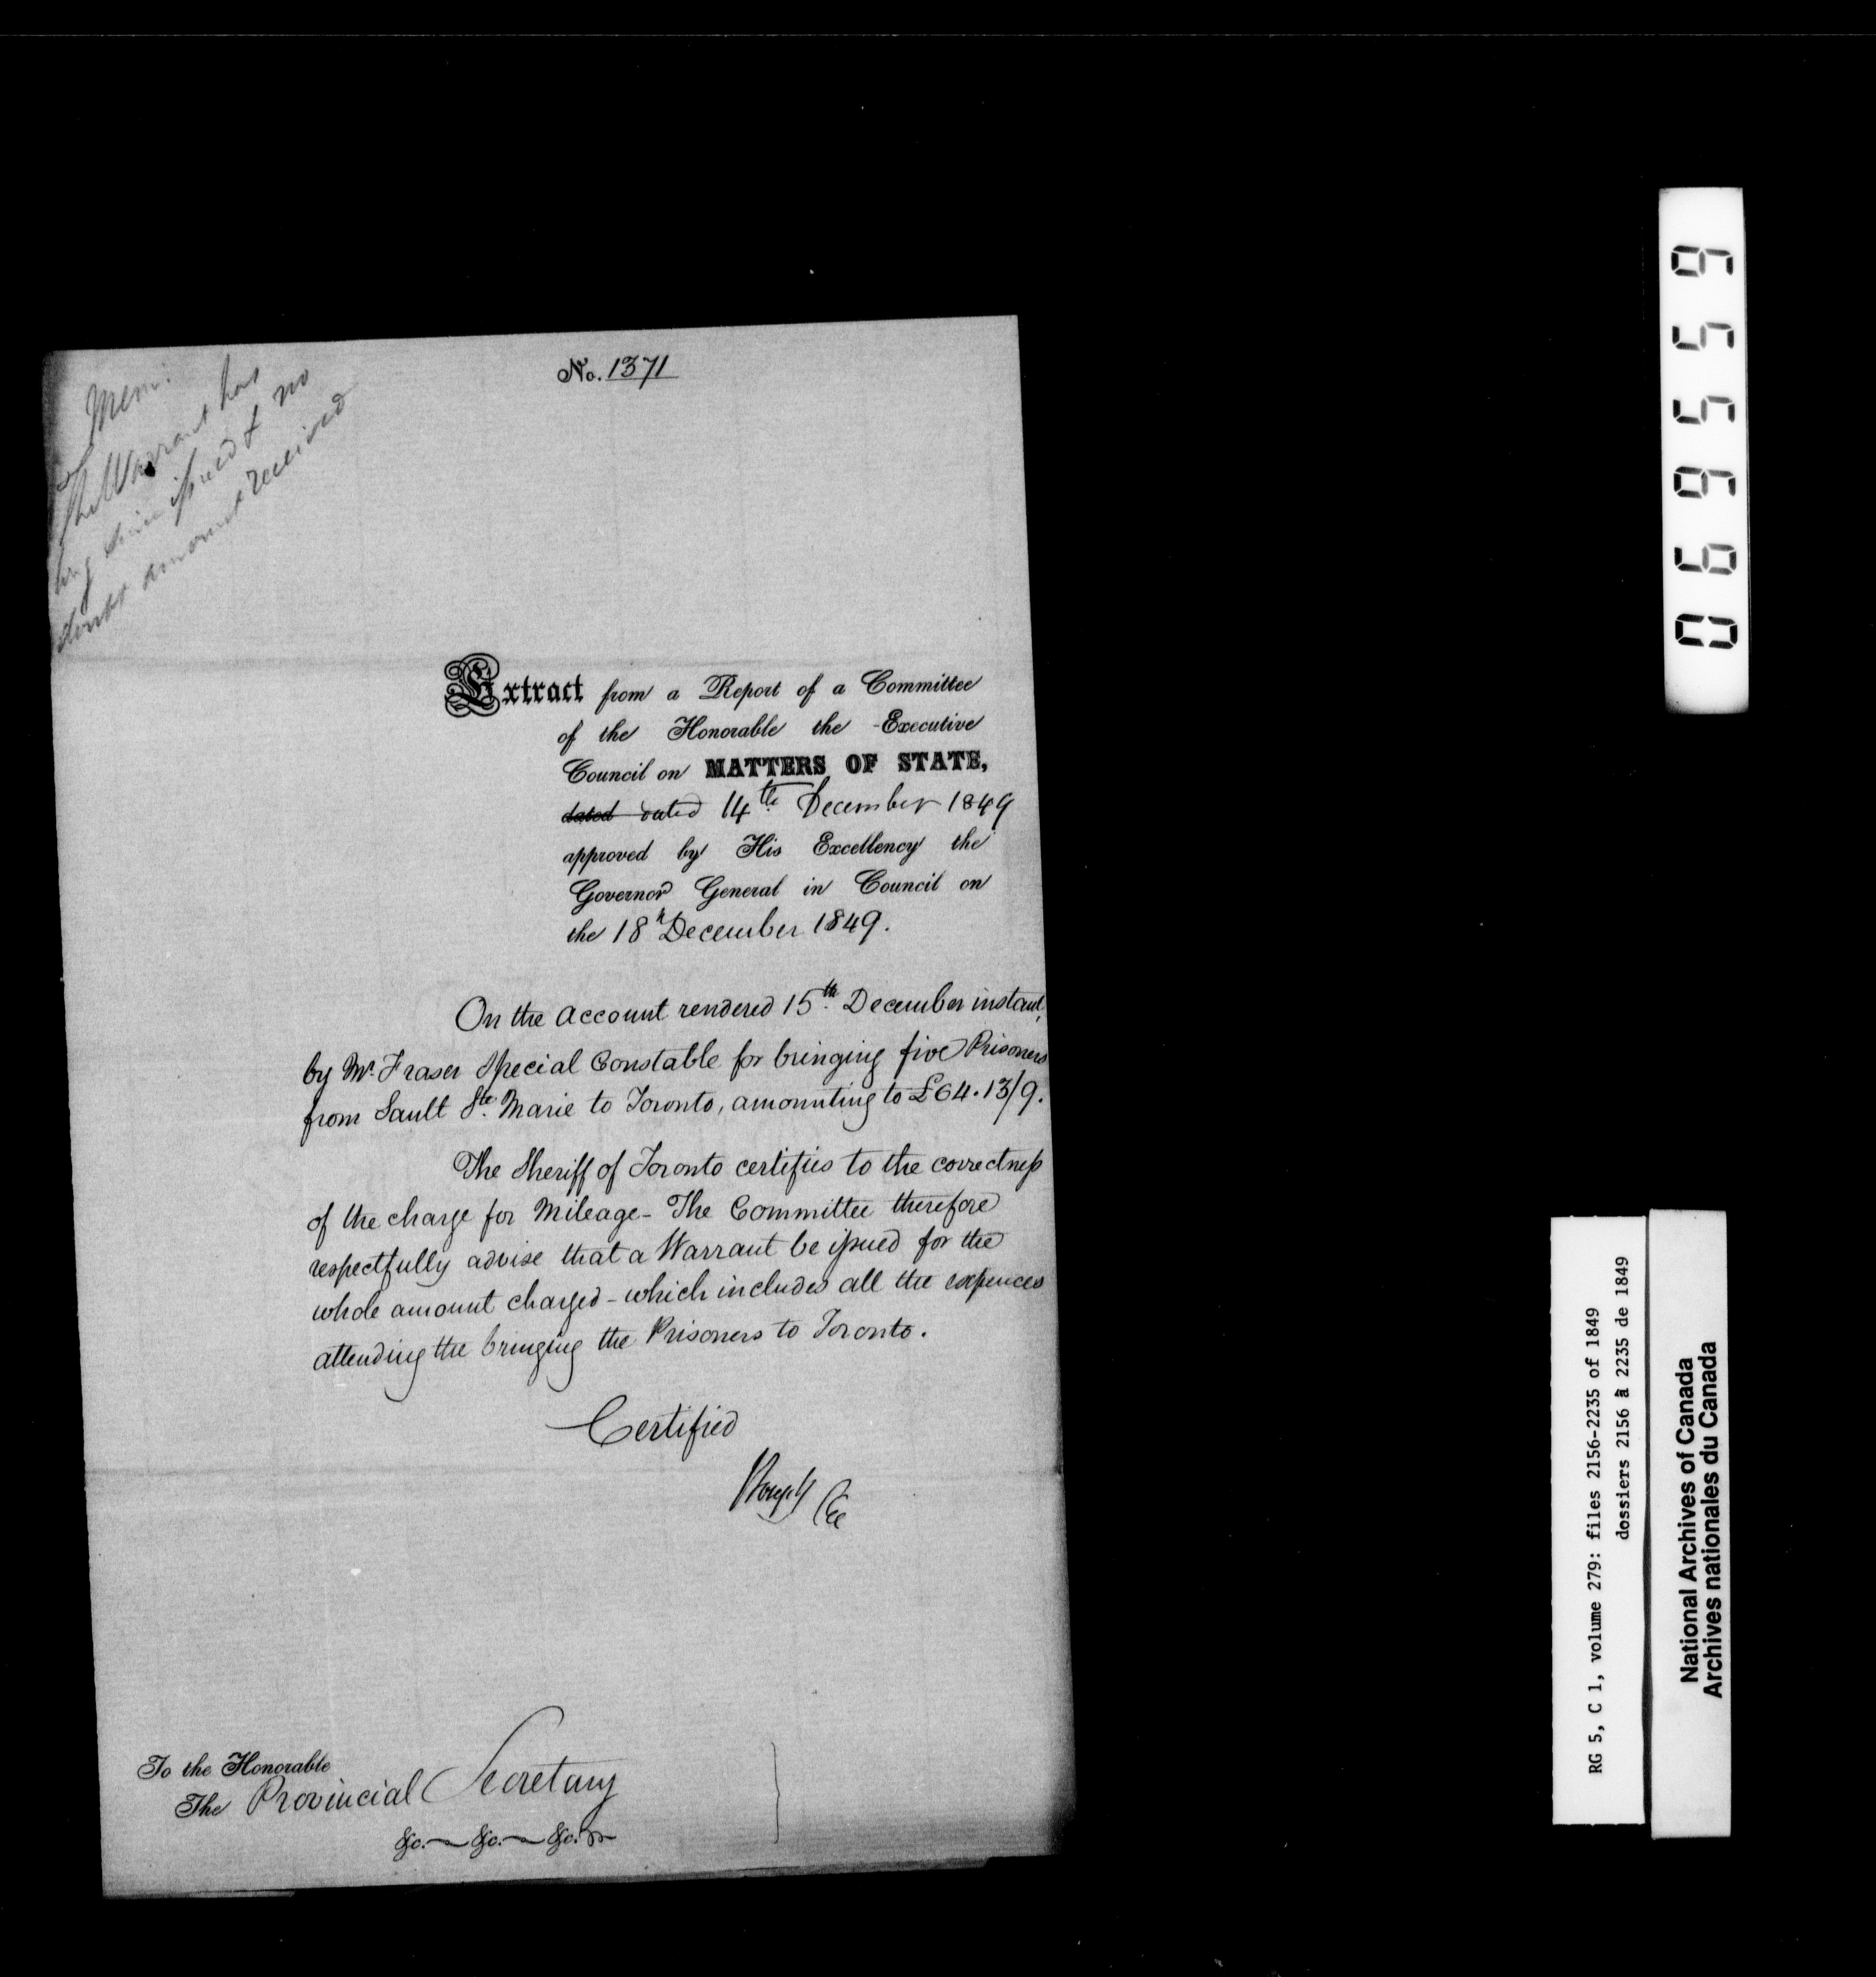 No. 1371
Mem:
The Warrant has
long since issued & no
doubt amount received
Extract from a Report of a Committee
of the Honorable the Executive
Council on MATTERS OF STATE,
dated dated 14th December 1849
approved by His Excellency the
Governor General in Council on
the 18h December 1849.
On the Account rendered 15th December instant,
by Mr. Fraser Special Constable for bringing five Prisoners
from Sault Ste. Marie to Toronto, amounting to £64.13/9.
The Sheriff of Toronto certifies to the correctness
of the charge for Mileage - The Committee therefore
respectfully advise that a Warrant be issued for the
whole amount charged - which includes all the expences
attending the bringing the Prisoners to Toronto.
Certified
To the Honorable
The Provincial Secretary
&c. &c. &c.
066559
RG 5, C 1, volume 279: files 2156-2235 of 1849
dossiers 2156 à 2235 de 1849
National Archives of Canada
Archives nationales du Canada